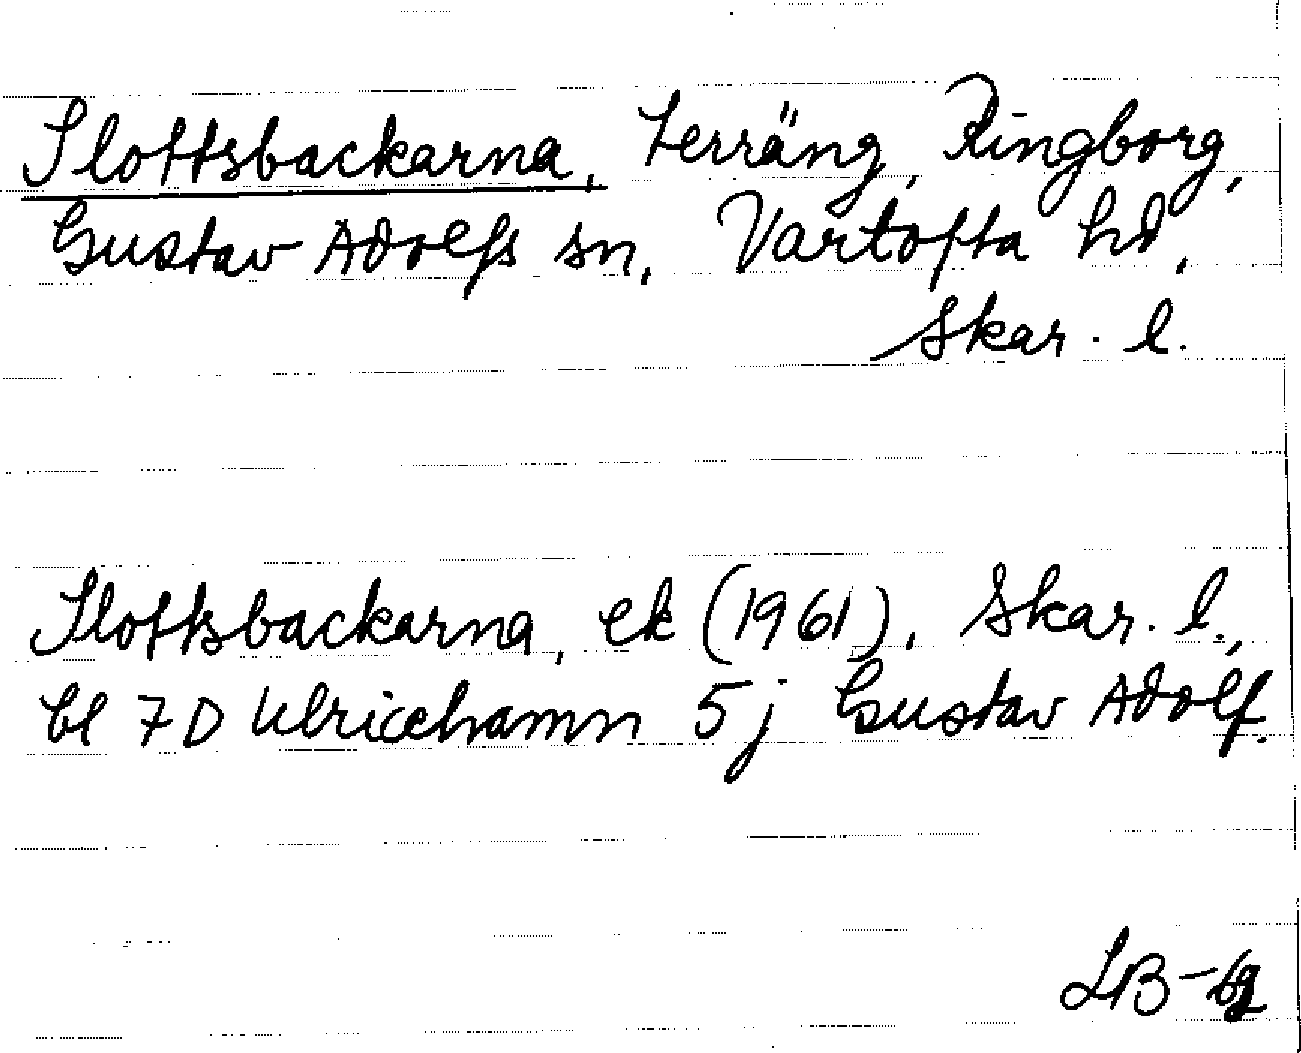 Slottsbackarna, terräng, Ringborg,
Gustav Adolfs sn, Vartofta hd,
Skar. l.
Slottsbackarna, ek (1961), Skar. l.,
bl 7D Ulricehamn 5j Gustav Adolf.
LB-bg